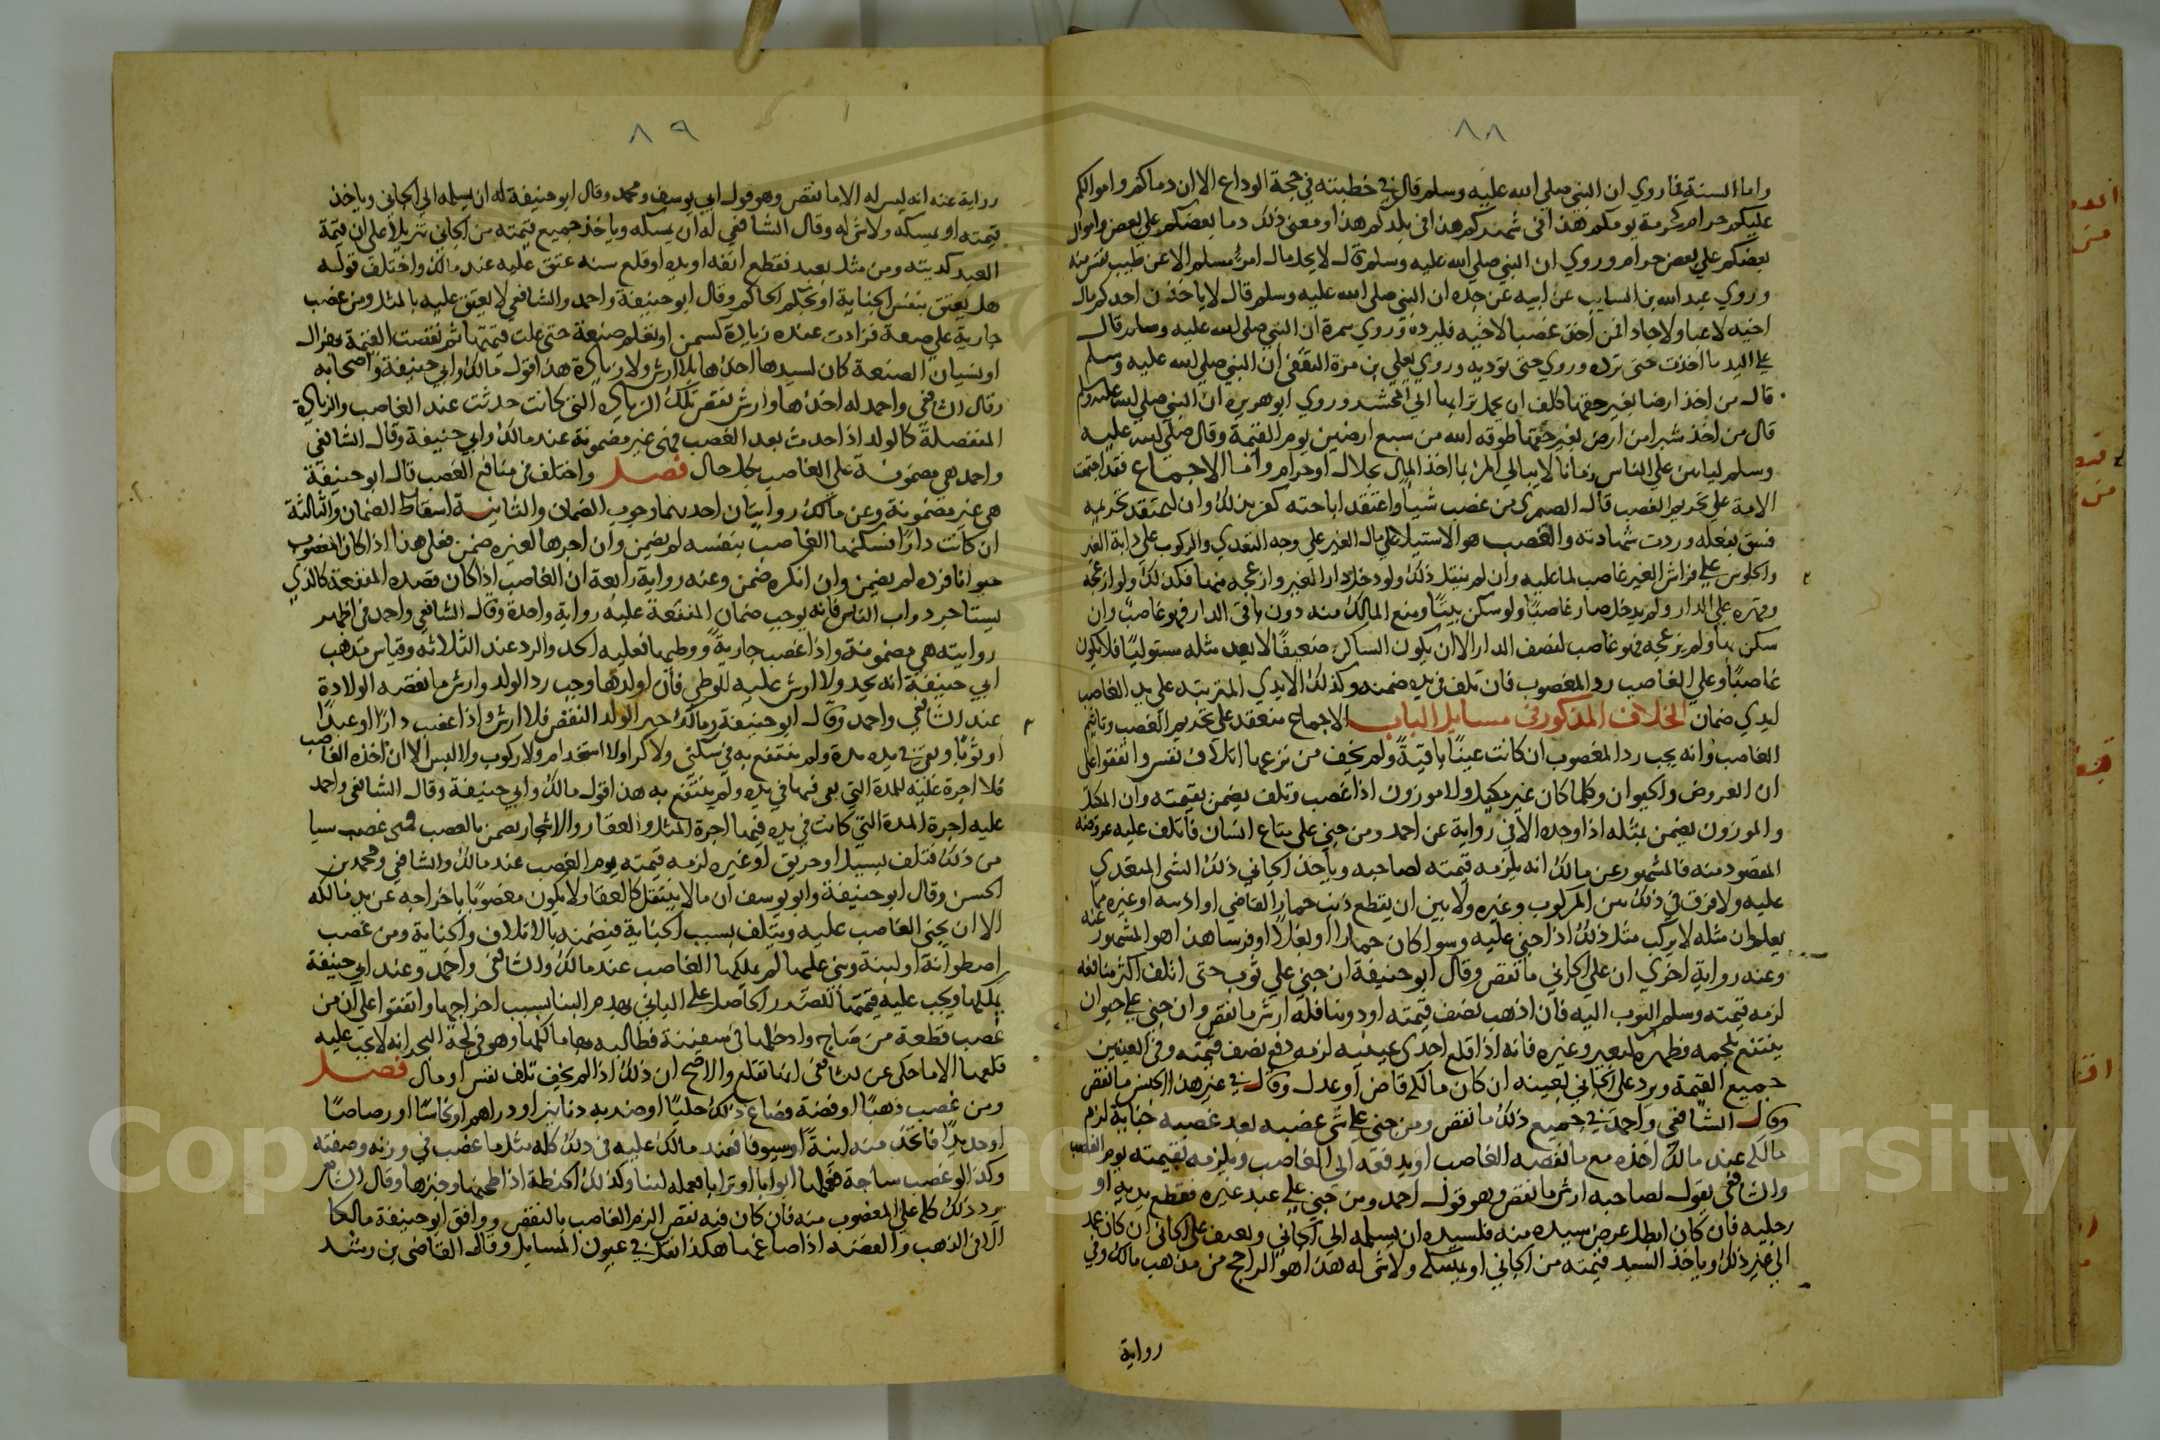 ٨٨
واما السنة فما روي ان النبي صلي الله عليه وسلم قال في خطبته في حجة الوداع الا ان دماكم واموالكم
عليكم حرام كحرمة يومكم هذا في شهركم هذا في بلدكم هذا ومعني ذلك دما بعضكم علي بعض واموال
بعضكم علي بعض حرام وروي ان النبي صلي الله عليه وسلم قال لا يحل مال امرئ مسلم الا عن طيب نفس منه
وروي عبد الله بن السايب عن ابيه عن جده ان النبي صلي الله عليه وسلم قال لا ياخذن احدكم مال
اخيه لاعبا ولا جادا فمن اخذ عصا لاخيه فليرده وروي سمرة ان النبي صلي الله عليه وسلم قال
علي اليد ما اخذت حتى ترده وروي حتى توديه وروي يعلي بن مرة الثقفي ان النبي صلي الله عليه وسلم
قال من اخذ ارضا بغير حقها كلف ان يحمل ترابها الي المحشر وروي ابو هريرة ان النبي صلي الله عليه وسلم
قال من اخذ شبرا من ارض بغير حقها طوقه الله من سبع ارضين يوم القيمة وقال صلي الله عليه
وسلم لياتين علي الناس زمانا لا يبالي المرء بما اخذ المال بحلال او حرام واما الاجماع فقد اجتمعت
الامة علي تحريم الغصب قال الصيمري من غصب شيا واعتقد اباحته كفر بذلك وان اعتقد تحريمه
فسق بفعله وردت شهادته والغصب هو الاستيلا علي مال الغير علي وجه التعدي والركوب علي دابة الغير
والجلوس علي فراش الغير غاصب لما عليه وان لم ينقل ذلك ولو دخل دار الغير وازعجه منها فكذلك ولو ازعجه
وقهره علي الدار ولم يدخل صار غاصبا ولو سكن بيتا ومنع المالك منه دون باقي الدار فهو غاصب وان
سكن بها ولم يزعجه فهو غاصب لنصف الدار الا ان يكون الساكن ضعيفا لا يعد مثله مستوليا فلا يكون
غاصبا وعلي الغاصب رد المغصوب فان تلف في يده ضمنه وكذلك الايدي المترتبة علي يد الغاصب
ايدي ضمان الخلاف المذكور في مسايل الباب الاجماع منعقد علي تحريم الغصب وتاثيم
الغاصب وانه يجب رد المغصوب ان كانت عينا باقية ولم يخف من نزعها اتلاف نفس واتفقوا علي
ان العروض والحيوان وكلما كان غير مكيل ولا موزون اذا غصب وتلف يضمن بقيمته وان المكيل
والموزون يضمن بمثله اذا وجد الا في رواية عن احمد ومن جني علي متاع انسان فاتلف عليه غرضه
المقصود منه فالمشهور عن مالك انه يلزمه قيمته لصاحبه وياخذ الجاني ذلك الشي المتعدي
عليه ولا فرق في ذلك بين المركوب وغيره ولا بين ان يقطع ذنب حمار القاضي او اذنيه او غيره مما
يعلم ان مثله لا يركب مثل ذلك اذا جني عليه وسوا كان حمارا او بغلا او فرسا هذا هو المشهور عنه
وعنه رواية اخري ان علي الجاني ما نقص وقال ابو حنيفة ان جني علي ثوب حتى اتلف اكثر منافعه
لزمه قيمته وسلم الثوب اليه فان اذهب نصف قيمته او دونها فله ارش ما نقص وان جني علي حيوان
ينتفع بلحمه وظهره كبعير وغيره فانه اذا قلع احدي عينيه لزمه دفع نصف قيمته وفي العينين
جميع القيمة ويرد علي الجاني بعينه ان كان مالكه قاض او عدل وقال في غير هذا الجنس ما نقص
وقال الشافعي واحمد في جميع ذلك ما نقص ومن جني علي شي غصبه بعد غصبه جناية لزم
مالكه عند مالك اخذه مع ما نقصه الغاصب او يدفعه الي الغاصب ويلزمه بقيمته يوم الغصب
والشافعي يقول لصاحبه ارش ما نقص وهو قول احمد ومن جني علي عبد غيره فقطع يديه او
رجليه فان كان ابطل غرض سيده منه فلسيده ان يسلمه الي الجاني ويعتق علي الجاني ان كان عمد
الي غير ذلك وياخذ السيد قيمته من الجاني او يمسكه ولا شي له هذا هو الراجح من مذهب مالك وفي
رواية
٨٩
رواية عنه انه ليس له الا ما نقص وهو قول ابي يوسف ومحمد وقال ابو حنيفة له ان يسلمه الي الجاني وياخذ
قيمته او يمسكه ولا شي له وقال الشافعي له ان يمسكه وياخذ جميع قيمته من الجاني تنزيلا علي ان قيمة
العبد كديته ومن مثل بعبد فقطع انفه او يده او قلع سنه عتق عليه عند مالك واختلف قوله
هل يعتق بنفس الجناية او بحكم الحاكم وقال ابو حنيفة واحمد والشافعي لا يعتق عليه بالمثل ومن غصب
جارية علي صفة فزادت عنده زيادة كسمن او تعلم صنعة حتى غلت قيمتها ثم نقصت القيمة بهزال
او نسيان الصنعة كان لسيدها اخذها بلا ارش ولا زيادة هذا قول مالك وابي حنيفة واصحابه
وقال الشافعي واحمد له اخذها وارش نقص تلك الزيادة التي كانت حدثت عند الغاصب والزيادة
المنفصلة كالولد اذا حدث بعد الغصب فهي غير مضمونة عند مالك وابي حنيفة وقال الشافعي
واحمد هي مضمونة علي الغاصب بكل حال فصل واختلف في منافع الغصب قال ابو حنيفة
هي غير مضمونة وعن مالك روايتان احديهما وجوب الضمان والثانية اسقاط الضمان والثالثة
ان كانت دارا فسكنها الغاصب بنفسه لم يضمن وان اجرها لغيره ضمن فعلي هذا اذا كان المغصوب
حيوانا فرده لم يضمن وان انكره ضمن وعنه رواية رابعة ان الغاصب اذا كان قصده المنفعة كالذي
يستاجر دواب الناس فانه يوجب ضمان المنفعة عليه رواية واحدة وقال الشافعي واحمد في اظهر
روايتيه هي مضمونة واذا غصب جارية ووطيها فعليه الحد والرد عند الثلاثة وقياس مذهب
ابي حنيفة انه يحد ولا ارش عليه للوطي فان اولدها وجب رد الولد وارش ما نقصه الولادة
عند الشافعي واحمد وقال ابو حنيفة ومالك جبر الولد النقص فلا ارش واذا غصب دارا او عبدا
او ثوبا وبقي في يده مدة ولم ينتفع به في سكني ولا كرا ولا استخدام ولا ركوب ولا لبس الا ان اخذه الغاصب
فلا اجرة عليه للمدة التي بقي فيها في يده ولم ينتفع به هذا قول مالك وابي حنيفة وقال الشافعي واحمد
عليه اجرة المدة التي كانت في يده فيها اجرة المثل والعقار والاشجار يضمن بالغصب فمتى غصب شيا
من ذلك فتلف بسيل او حريق او غيره لزمه قيمته يوم الغصب عند مالك والشافعي ومحمد بن
الحسن وقال ابو حنيفة وابو يوسف ان ما لا ينتقل كالعقار لا يكون مغصوبا باخراجه عن يد مالكه
الا ان يجني الغاصب عليه ويتلف بسبب الجناية فيضمنه بالاتلاف والجناية ومن غصب
اصطوانة او لبنة وبني عليها لم يملكها الغاصب عند مالك والشافعي واحمد وعند ابي حنيفة
يملكها ويجب عليه قيمتها للضرر الحاصل علي الباني بهدم البنا بسبب اخراجها واتفقوا علي ان من
غصب قطعة من ساج وادخلها في سفينة فطالبه بها مالكها وهو في لجة البحر انه لا يجب عليه
قلعها الا ما حكي عن الشافعي انها تقلع والاصح ان ذلك اذا لم يخف تلف نفس او مال فصل
ومن غصب ذهبا او فضة فصاغ ذلك حليا او ضربه دنانير او دراهم او نحاسا او رصاصا
او حديدا فاتخذ منه انية او سيوفا فعند مالك عليه في ذلك كله مثل ما غصب في وزنه وصفته
وكذا لو غصب ساجة فعملها ابوابا او ترابا فعمله لبنا وكذلك الحنطة اذا طحنها وخبزها وقال الشافعي
يرد ذلك كله علي المغصوب منه فان كان فيه نقص الزم الغاصب بالنقص ووافق ابو حنيفة مالكا
الا في الذهب والفضة اذا صاغها هكذا نقل في عيون المسايل وقال القاضي بن رشد
Copyright © King Saud University